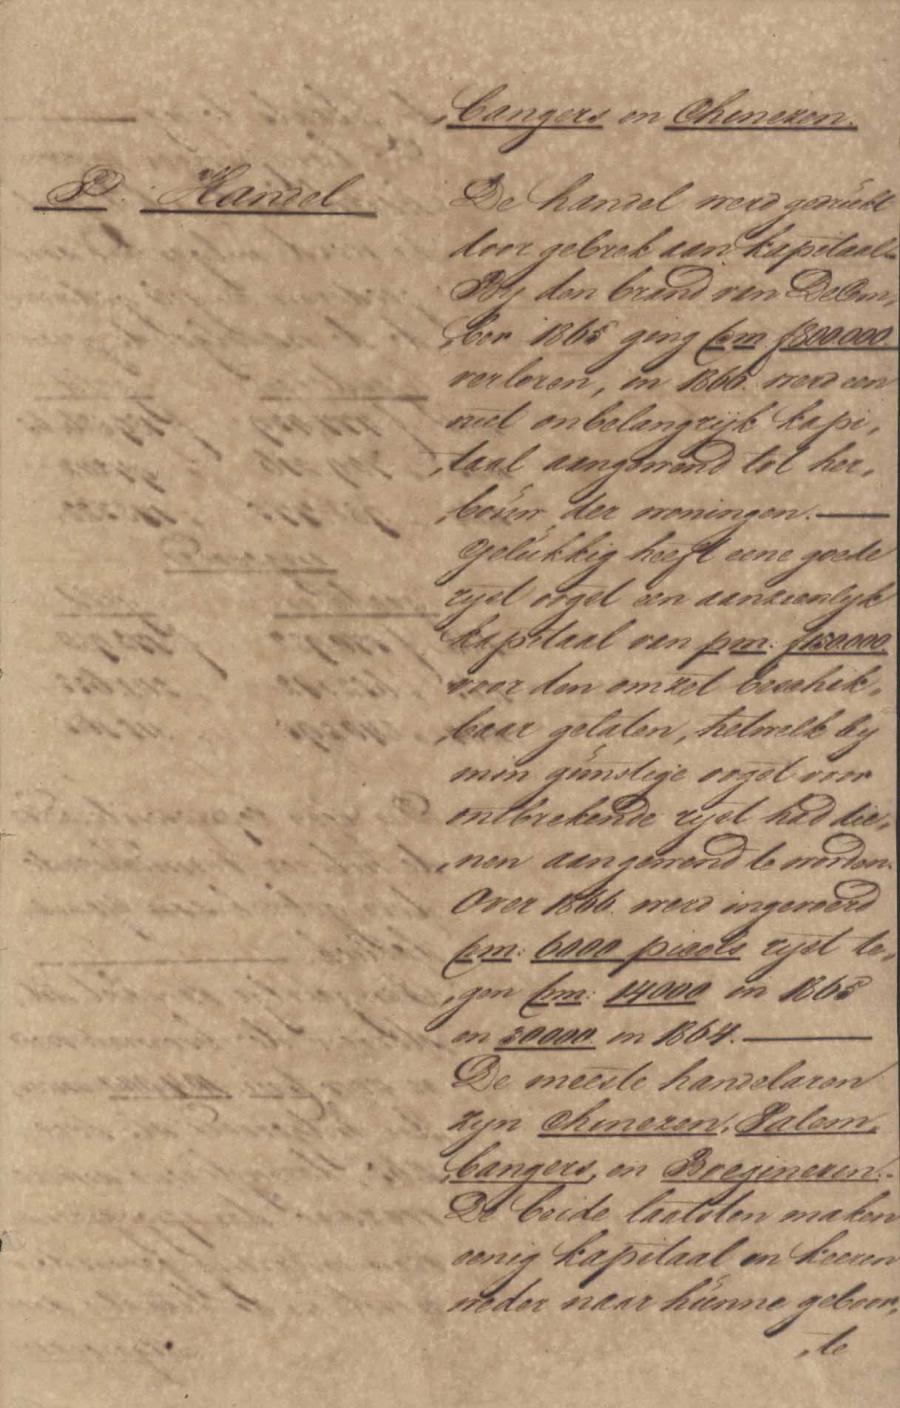 „bangers en Chinezen.
P. Handel
De handel werd gedrukt
door gebrek aan kapitaal.
By den brand van Decem„
„ber 1865 ging pm f800.000
verloren, in 1866 werd een
niet onbelangrijk kapi„
„taal aangewend tot her„
„bouw der woningen. —
Gelukkig heeft eene goede
ryst oogst een aanzienlyk
kapitaal van pm: f150.000
voor den omzet beschik„
„baar gelaten, hetwelk by
min gunstige oogst voor
ontbrekende ryst had die„
„nen aangewend te worden.
Over 1866 werd ingevoerd
pm: 6000 picols ryst te„
„gen pm: 14000 in 1865
en 20000 in 1864. —
De meeste handelaren
zyn Chinezen, Palem„
„bangers, en Boeginezen.
De beide laatsten maken
eenig kapitaal en keeren
weder naar hunne geboor„
„te